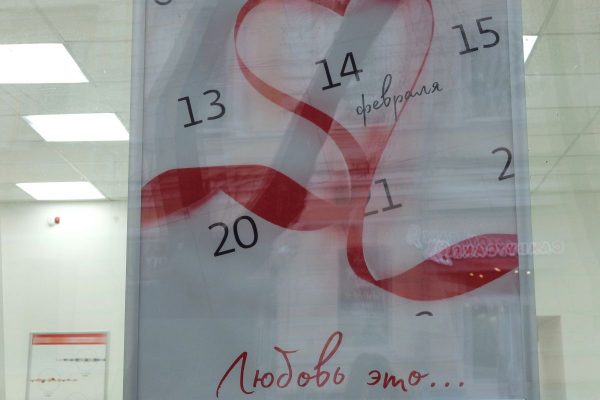 13 14 15
февраля
20 21 2
Любовь это...